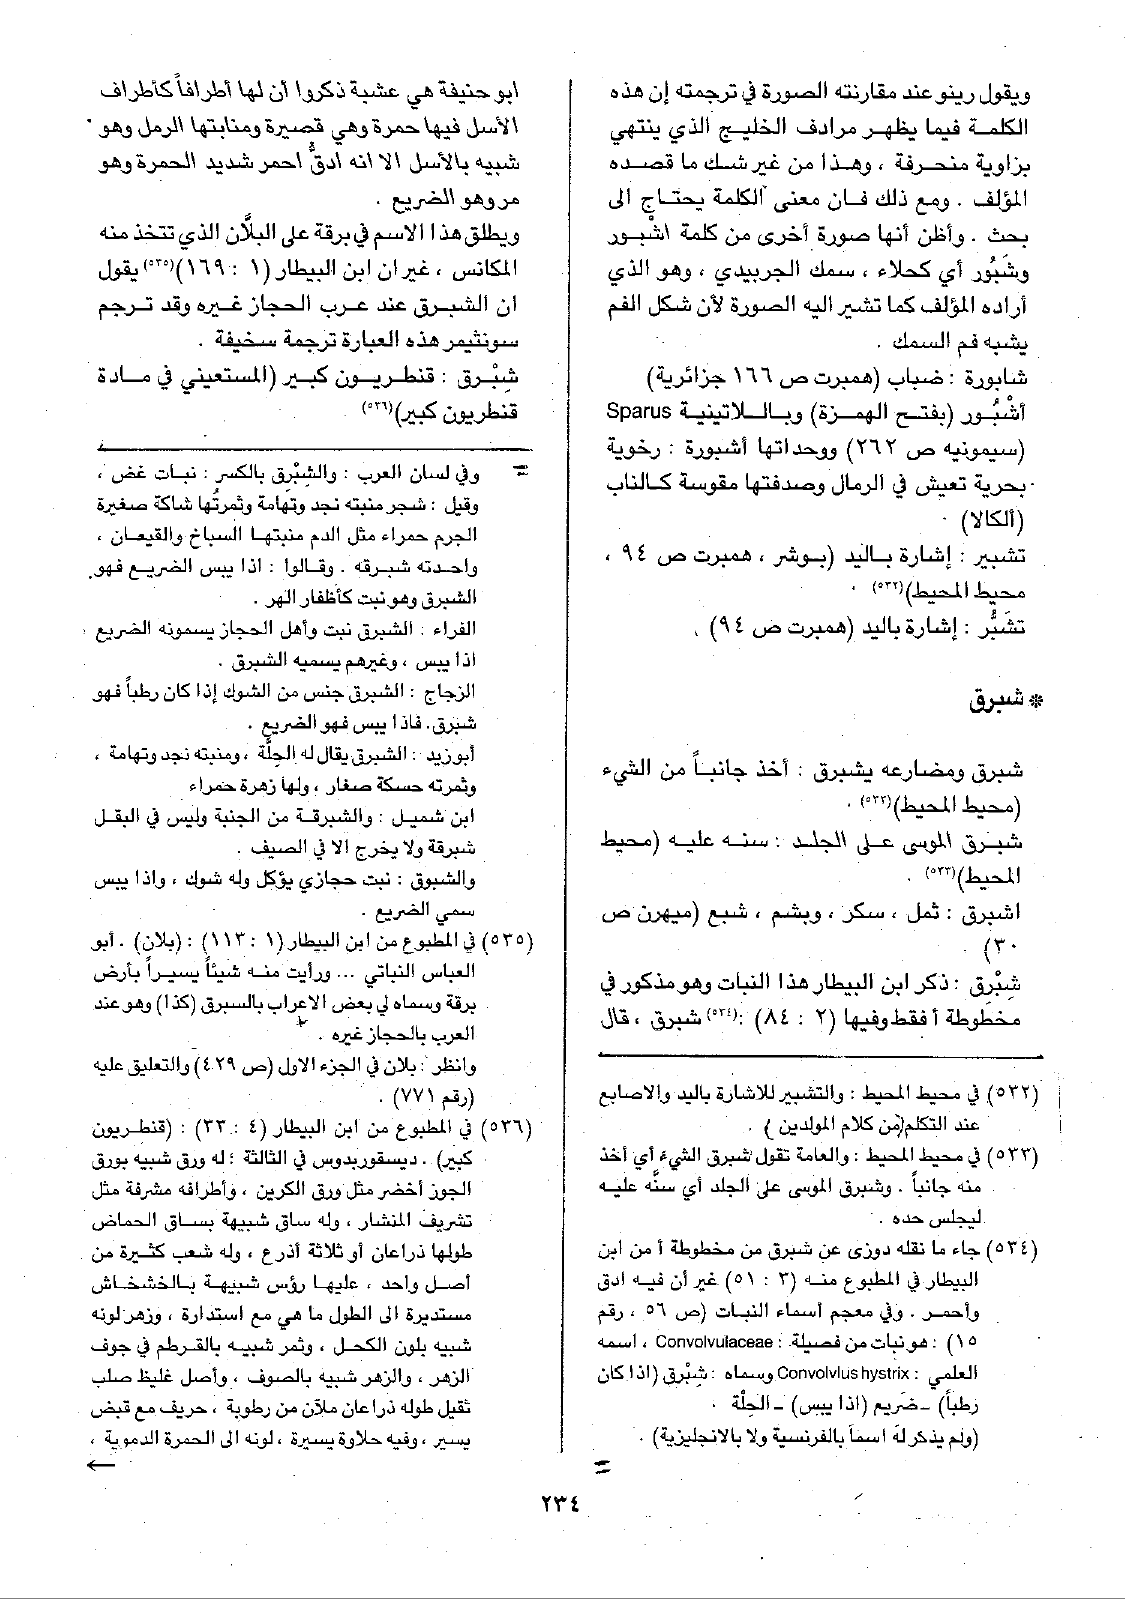 ويقول رينو عند مقارنته الصورة في ترجمته إن هذه
الكلمة فيما يظهر مرادف الخليج الذي ينتهي
بزاوية منحرفة ، وهذا من غير شك ما قصده
المؤلف . ومع ذلك فان معنى الكلمة يحتاج الى
بحث . وأظن أنها صورة أخرى من كلمة اشْبور
وشَبُّور أي كحلاء ، سمك الجربيدي ، وهو الذي
أراده المؤلف كما تشير اليه الصورة لأن شكل الفم
يشبه فم السمك .
شابورة : ضباب (همبرت ص ١٦٦ جزائرية)
أشْبُور (بفتح الهمزة) وباللاتينية Sparus
(سيمونيه ص ٢٦٢) ووحداتها أشبورة : رخوية
بحرية تعيش في الرمال وصدفتها مقوسة كالناب
(ألكالا)
تشبير : إشارة باليد (بوشر ، همبرت ص ٩٤ ،
محيط المحيط)(٥٣٢) .
تشبُّر : إشارة باليد (همبرت ص ٩٤) .
* شبرق
شبرق ومضارعه يشبرق : أخذ جانباً من الشيء
(محيط المحيط)(٥٣٣) .
شبرق الموسى على الجلد : سنه عليه (محيط
المحيط)(٥٣٣) .
اشبرق : ثمل ، سكر ، وبشم ، شبع (ميهرن ص
٣٠) .
شِبْرِق : ذكر ابن البيطار هذا النبات وهو مذكور في
مخطوطة أ فقط وفيها (٢ : ٨٤) :(٥٣٤) شبرق ، قال
(٥٣٢) في محيط المحيط : والتشبير للاشارة باليد والاصابع
عند التكلم (من كلام المولدين) .
(٥٣٣) في محيط المحيط : والعامة تقول شبرق الشيء أي أخذ
منه جانباً . وشبرق الموسى على الجلد أي سنّه عليه
ليجلس حده .
(٥٣٤) جاء ما نقله دوزى عن شبرق من مخطوطة أ من ابن
البيطار في المطبوع منه (٣ : ٥١) غير أن فيه ادق
وأحمر . وفي معجم أسماء النبات (ص ٥٦ ، رقم
١٥) : هو نبات من فصيلة : Convolvulaceae ، اسمه
العلمي : Convolvlus hystrix وسماه : شِبْرِق (اذا كان
رطباً) – ضريع (اذا يبس) – الجلّة .
(ولم يذكر له اسماً بالفرنسية ولا بالانجليزية) .
=
ابو حنيفة هي عشبة ذكروا أن لها أطرافاً كأطراف
الأسل فيها حمرة وهي قصيرة ومنابتها الرمل وهو
شبيه بالأسل الا انه ادقُّ احمر شديد الحمرة وهو
مر وهو الضريع .
ويطلق هذا الاسم في برقة على البلَّان الذي تتخذ منه
المكانس ، غير ان ابن البيطار (١ : ١٦٩)(٥٣٥) يقول
ان الشبرق عند عرب الحجاز غيره وقد ترجم
سونثيمر هذه العبارة ترجمة سخيفة .
شِبْرِق : قنطريون كبير (المستعيني في مادة
قنطريون كبير)(٥٣٦)
= وفي لسان العرب : والشِبْرِق بالكسر : نبات غض ،
وقيل : شجر منبته نجد وتهامة وثمرتُها شاكة صغيرة
الجرم حمراء مثل الدم منبتها السباخ والقيعان ،
واحدته شبرقه . وقالوا : اذا يبس الضريع فهو
الشبرق وهو نبت كأظفار الهر .
الفراء : الشبرق نبت وأهل الحجاز يسمونه الضريع
اذا يبس ، وغيرهم يسميه الشبرق .
الزجاج : الشبرق جنس من الشوك إذا كان رطباً فهو
شبرق . فاذا يبس فهو الضريع .
أبو زيد : الشبرق يقال له الجلّة ، ومنبته نجد وتهامة ،
وثمرته حسكة صغار ، ولها زهرة حمراء
ابن شميل : والشبرقة من الجنبة وليس في البقل
شبرقة ولا يخرج الا في الصيف .
والشبوق : نبت حجازي يؤكل وله شوك ، واذا يبس
سمي الضريع .
(٥٣٥) في المطبوع من ابن البيطار (١ : ١١٣) : (بلان) . أبو
العباس النباتي ... ورأيت منه شيئاً يسيراً بأرض
برقة وسماه لي بعض الاعراب بالسبرق (كذا) وهو عند
العرب بالحجاز غيره .
وانظر : بلان في الجزء الاول (ص ٤٢٩) والتعليق عليه
(رقم ٧٧١) .
(٥٣٦) في المطبوع من ابن البيطار (٤ : ٣٣) : (قنطريون
كبير) . ديسقوريدوس في الثالثة : له ورق شبيه بورق
الجوز أخضر مثل ورق الكرنب ، وأطرافه مشرفة مثل
تشريف المنشار ، وله ساق شبيهة بساق الحماض
طولها ذراعان أو ثلاثة أذرع ، وله شعب كثيرة من
أصل واحد ، عليها رؤس شبيهة بالخشخاش
مستديرة الى الطول ما هي مع استدارة ، وزهر لونه
شبيه بلون الكحل ، وثمر شبيه بالقرطم في جوف
الزهر ، والزهر شبيه بالصوف ، وأصل غليظ صلب
ثقيل طوله ذراعان ملآن من رطوبة ، حريف مع قبض
يسير ، وفيه حلاوة يسيرة ، لونه الى الحمرة الدموية ،
←
٢٣٤